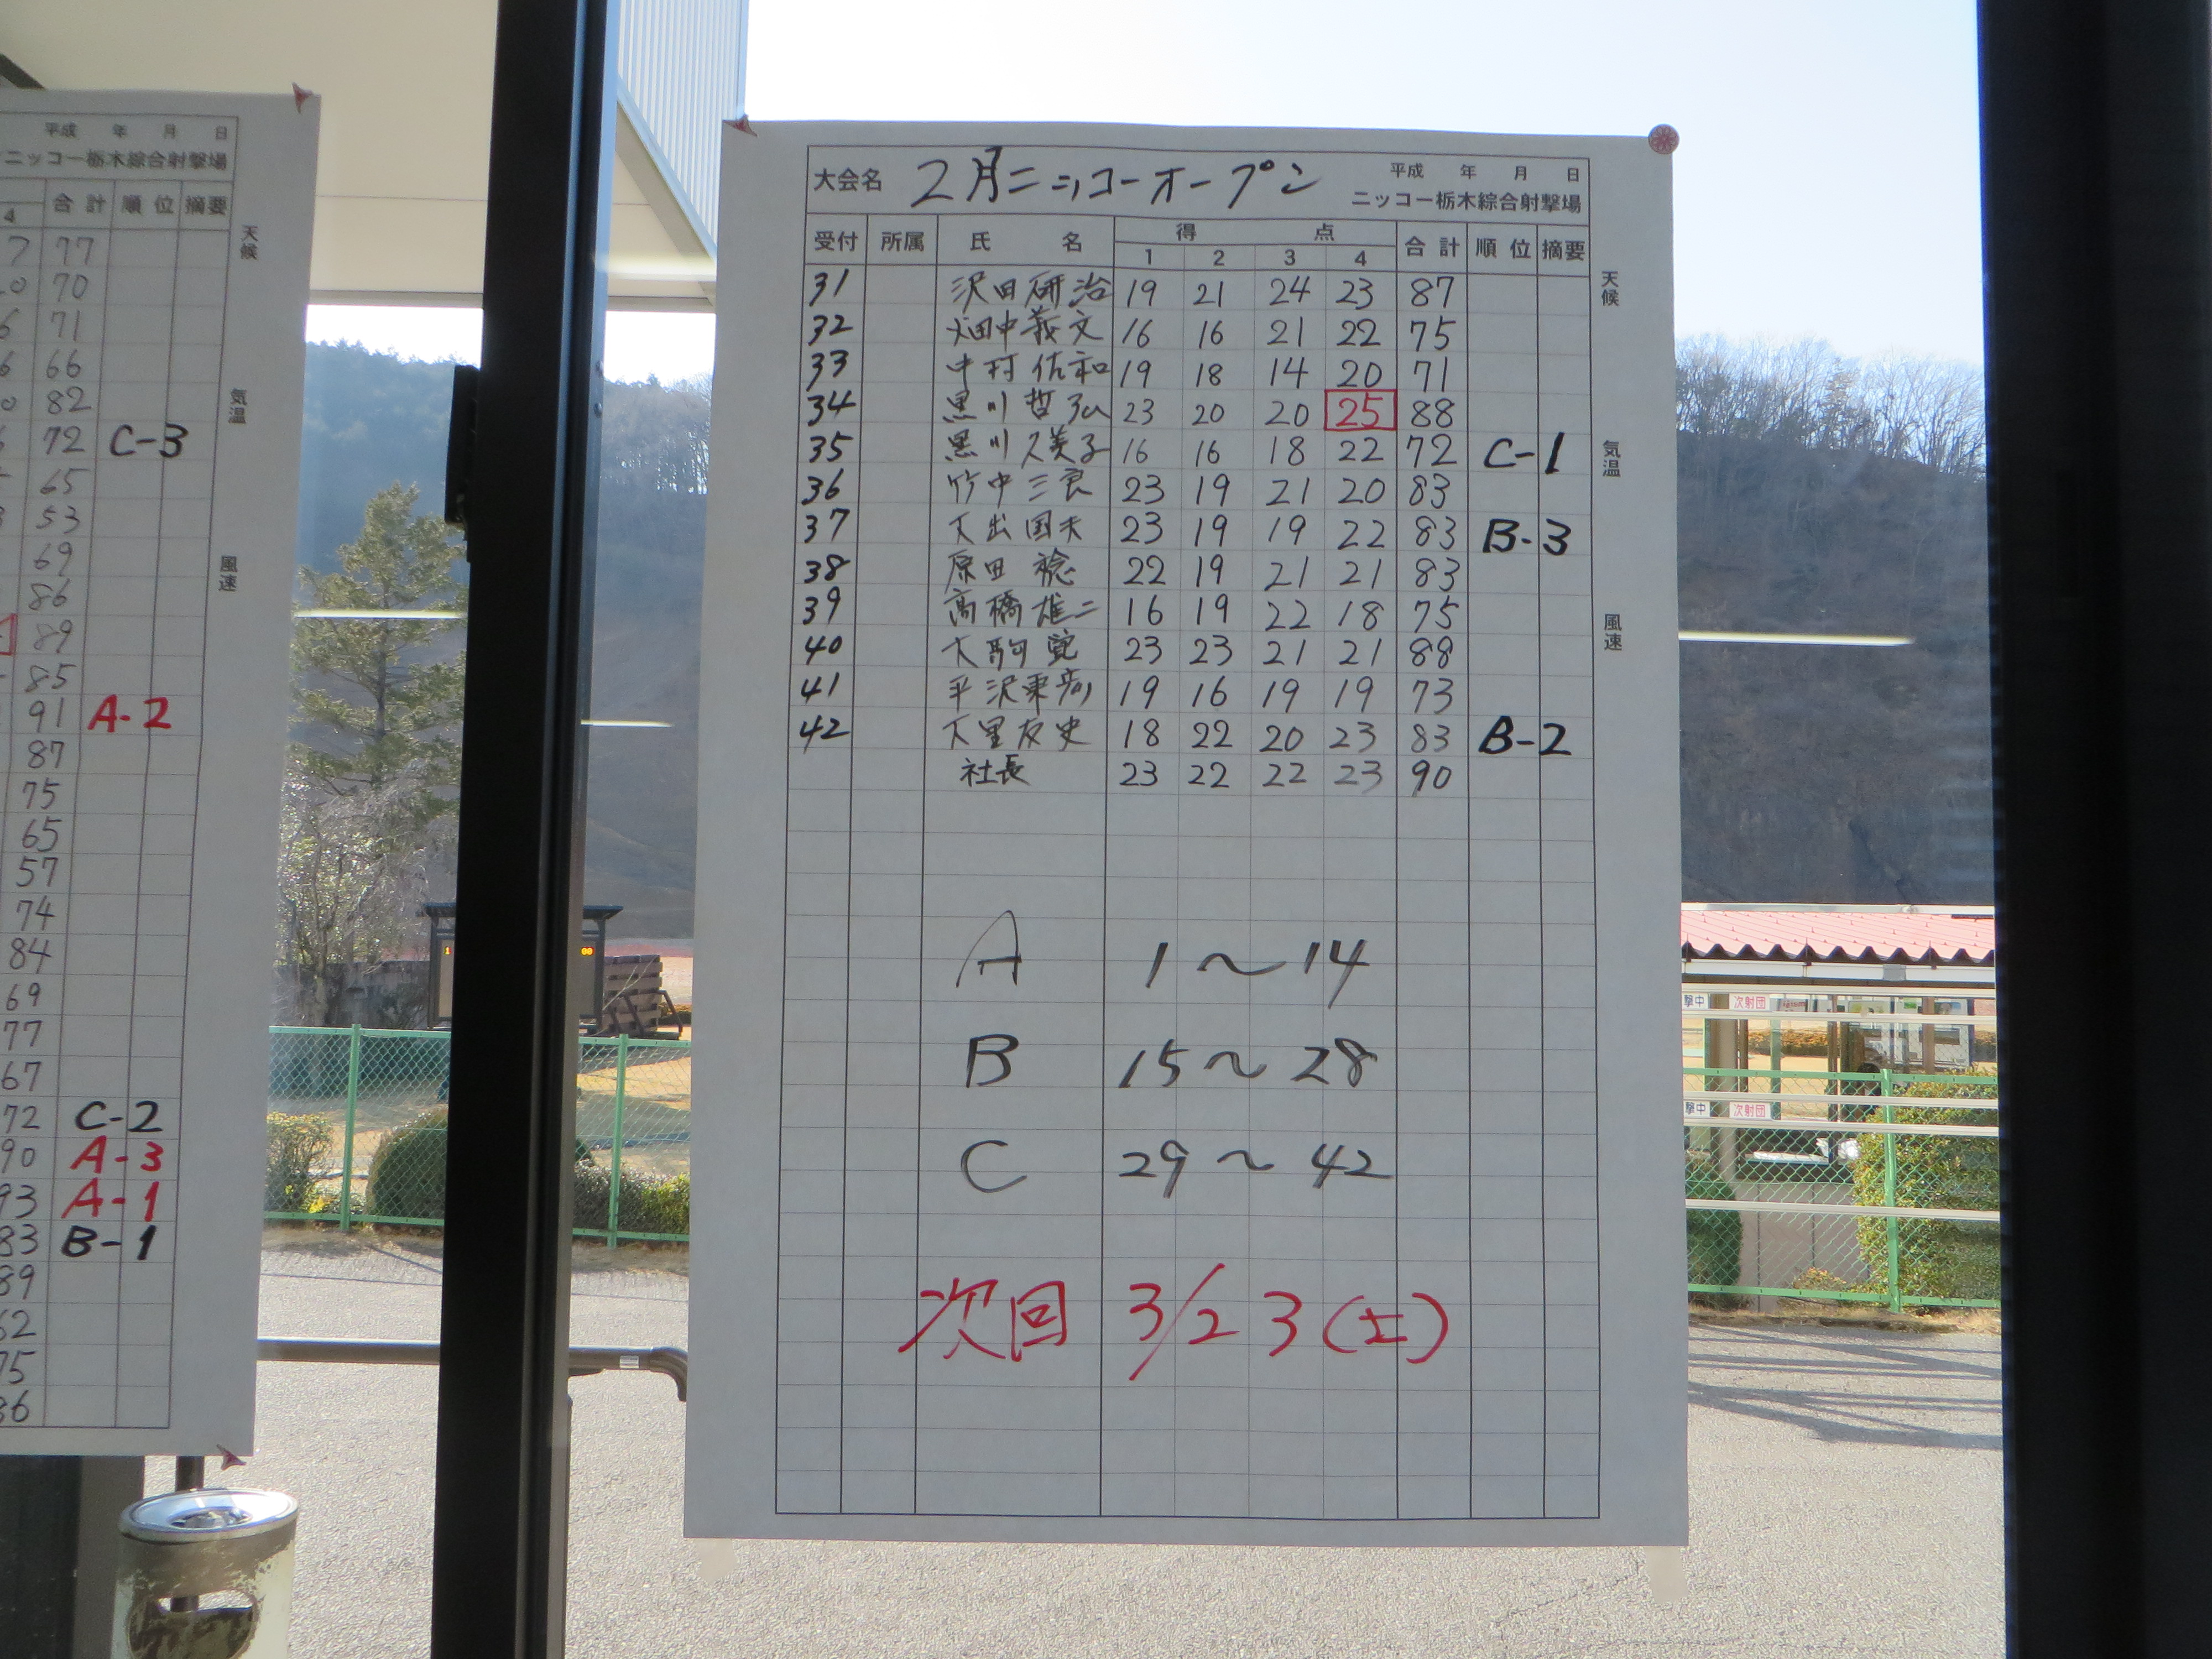 平成 年 月 日
ニッコー栃木綜合射撃場
4 合計 順位 摘要
天候
気温
風速
7 77
70
6 71
6 66
0 82
72 C-3
65
53
69
86
89
85
91 A-2
87
75
65
57
74
84
69
77
67
72 C-2
90 A-3
93 A-1
83 B-1
89
62
75
86
大会名 2月ニッコーオープン
平成 年 月 日
ニッコー栃木綜合射撃場
受付 所属 氏名 得点 合計 順位 摘要
1 2 3 4
31 沢田研治 19 21 24 23 87
32 畑中義文 16 16 21 22 75
33 中村佐和 19 18 14 20 71
34 黒川哲弘 23 20 20 25 88
35 黒川久美子 16 16 18 22 72 C-1
36 竹中三良 23 19 21 20 83
37 大出国夫 23 19 19 22 83 B-3
38 原田 稔 22 19 21 21 83
39 高橋雄二 16 19 22 18 75
40 大駒 覚 23 23 21 21 88
41 平沢東彦 19 16 19 19 73
42 大里友史 18 22 20 23 83 B-2
社長 23 22 22 23 90
A 1〜14
B 15〜28
C 29〜42
次回 3/23(土)
天候
気温
風速
撃中 次射団
撃中 次射団